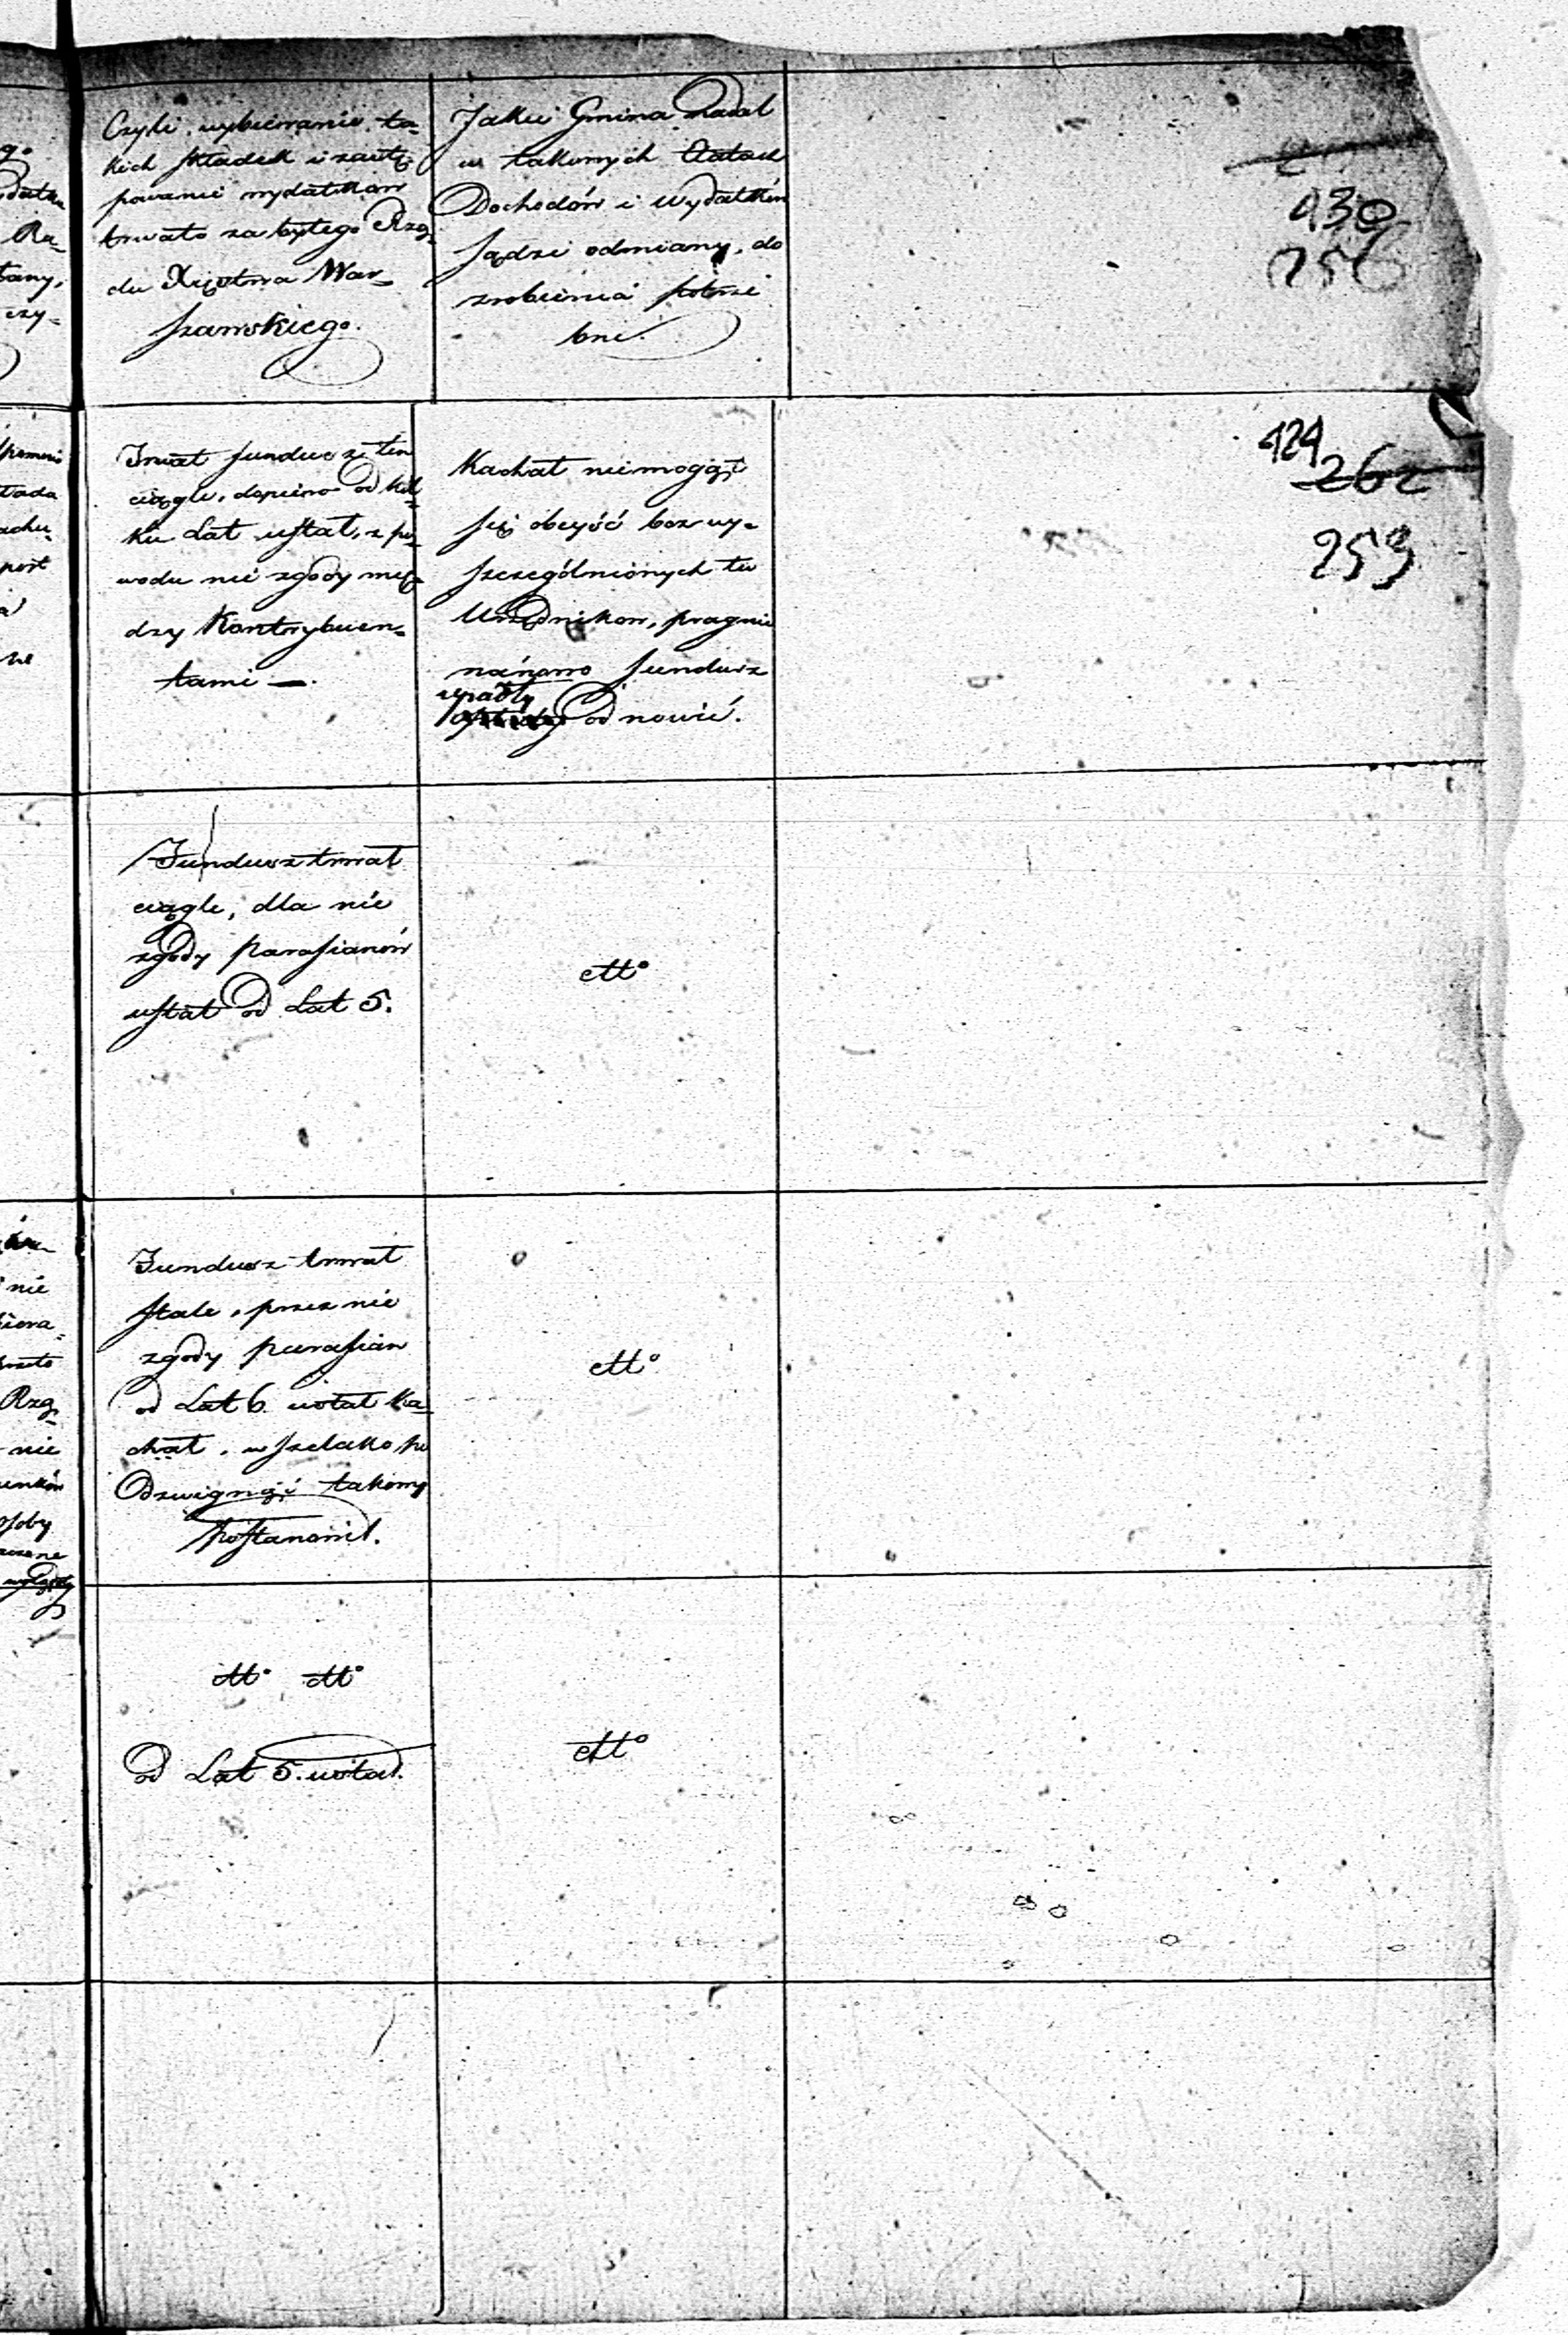 Czyli wybieranie ta-
kich składek i zastę-
powanie wydatków
trwało za byłego Rzą-
du Xięstwa War-
szawskiego.
Jakie Gmina nadal
w takowych Etatach
Dochodów i Wydatków
sądzi odmiany, do
zrobienia potrze
bne.
430
256
Trwał fundusz ten
ciągle, dopiero od kil-
ku Lat ustał, z po-
wodu nie zgody mię-
dzy Kontrybuen-
tami —.
Kachał niemogąc
się obejść bez wy-
szczególnionych tu
Urzędnikow, pragnie
nanowo fundusz
upadły
odnowić.
424
262
259
Fundusz trwał
ciągle, dla nie
zgody parafianów
ustał od Lat 5.
dtto
Fundusz trwał
stale, przez nie
zgody parafian
od Lat 6. ustał Ka-
chał, wszelako
Odzwignąć takowy
postanowił.
dtto
dtto dtto
od Lat 5. ustał.
dtto
nie
Rzą-
nie
osoby